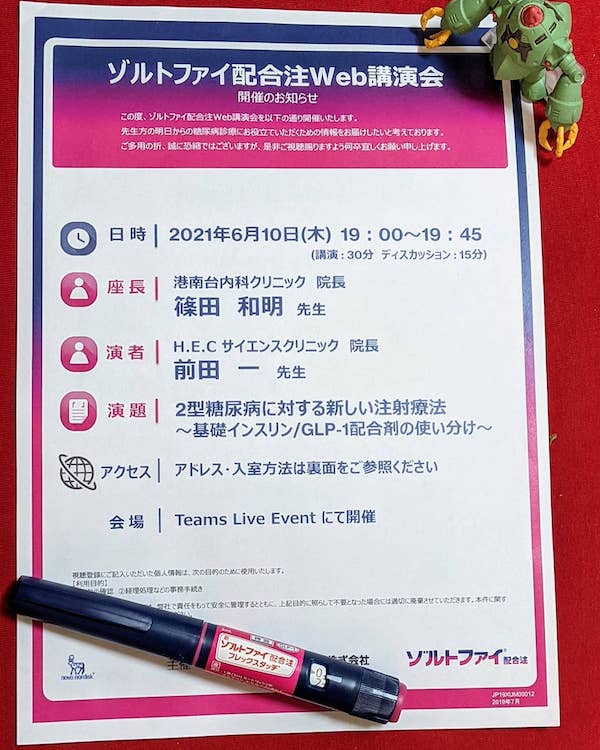 ゾルトファイ配合注Web講演会
開催のお知らせ
この度、ゾルトファイ配合注Web講演会を以下の通り開催いたします。
先生方の明日からの糖尿病診療にお役立ていただくための情報をお届けしたいと考えております。
ご多用の折、誠に恐縮ではございますが、是非ご視聴賜りますよう何卒宜しくお願い申し上げます。
日時 2021年6月10日(木) 19：00～19：45
(講演：30分 ディスカッション：15分)
座長 港南台内科クリニック 院長
篠田 和明 先生
演者 H.E.C サイエンスクリニック 院長
前田 一 先生
演題 2型糖尿病に対する新しい注射療法
～基礎インスリン/GLP-1配合剤の使い分け～
アクセス アドレス・入室方法は裏面をご参照ください
会場 Teams Live Event にて開催
視聴登録にご記入いただいた個人情報は、次の目的のために使用いたします。
【利用目的】
の確認 ②経理処理などの事務手続き
弊社で責任をもって安全に管理するとともに、上記目的に照らして不要となった場合には適切に廃棄させていただきます。本件に関す
ださい。
novo nordisk
主催
株式会社
ゾルトファイ®配合注
JP19XUM00012
2019年7月
ゾルトファイ®配合注
フレックスタッチ®